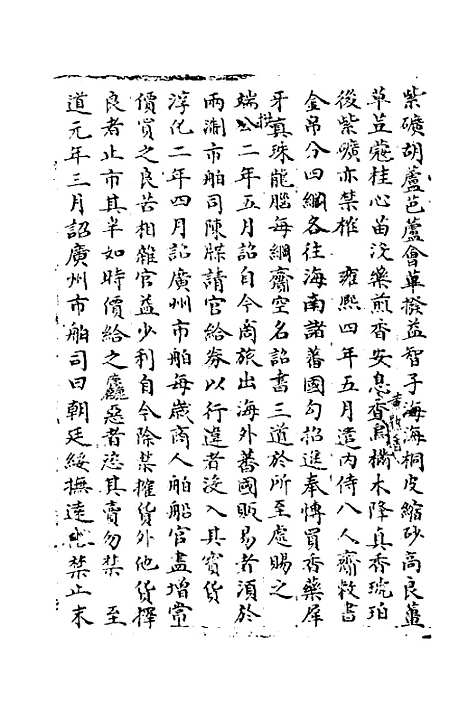 紫礦胡蘆芭蘆會蓽撥益智子海海桐皮縮砂高良薑
草荳蔻桂心苗沒藥煎香安息香烏橘木降真香琥珀
後紫礦亦禁榷　雍熙四年五月遣內侍八人齎敕書
金帛分四綱各往海南諸蕃國勾招進奉愽買香藥犀
牙真珠龍腦每綱齎空名詔書三道於所至處賜之
端拱二年五月詔自今商旅出海外蕃國販易者須於
兩淛市舶司陳牒請官給劵以行違者沒入其寳貨
淳化二年四月詔廣州市舶每歲商人舶船官盡增常
價買之良苦相雜官益少利自今除禁搉貨外他貨擇
良者止市其半如時價給之麤惡者恣其賣勿禁　至
道元年三月詔廣州市舶司曰朝廷綏撫遠俗禁止末